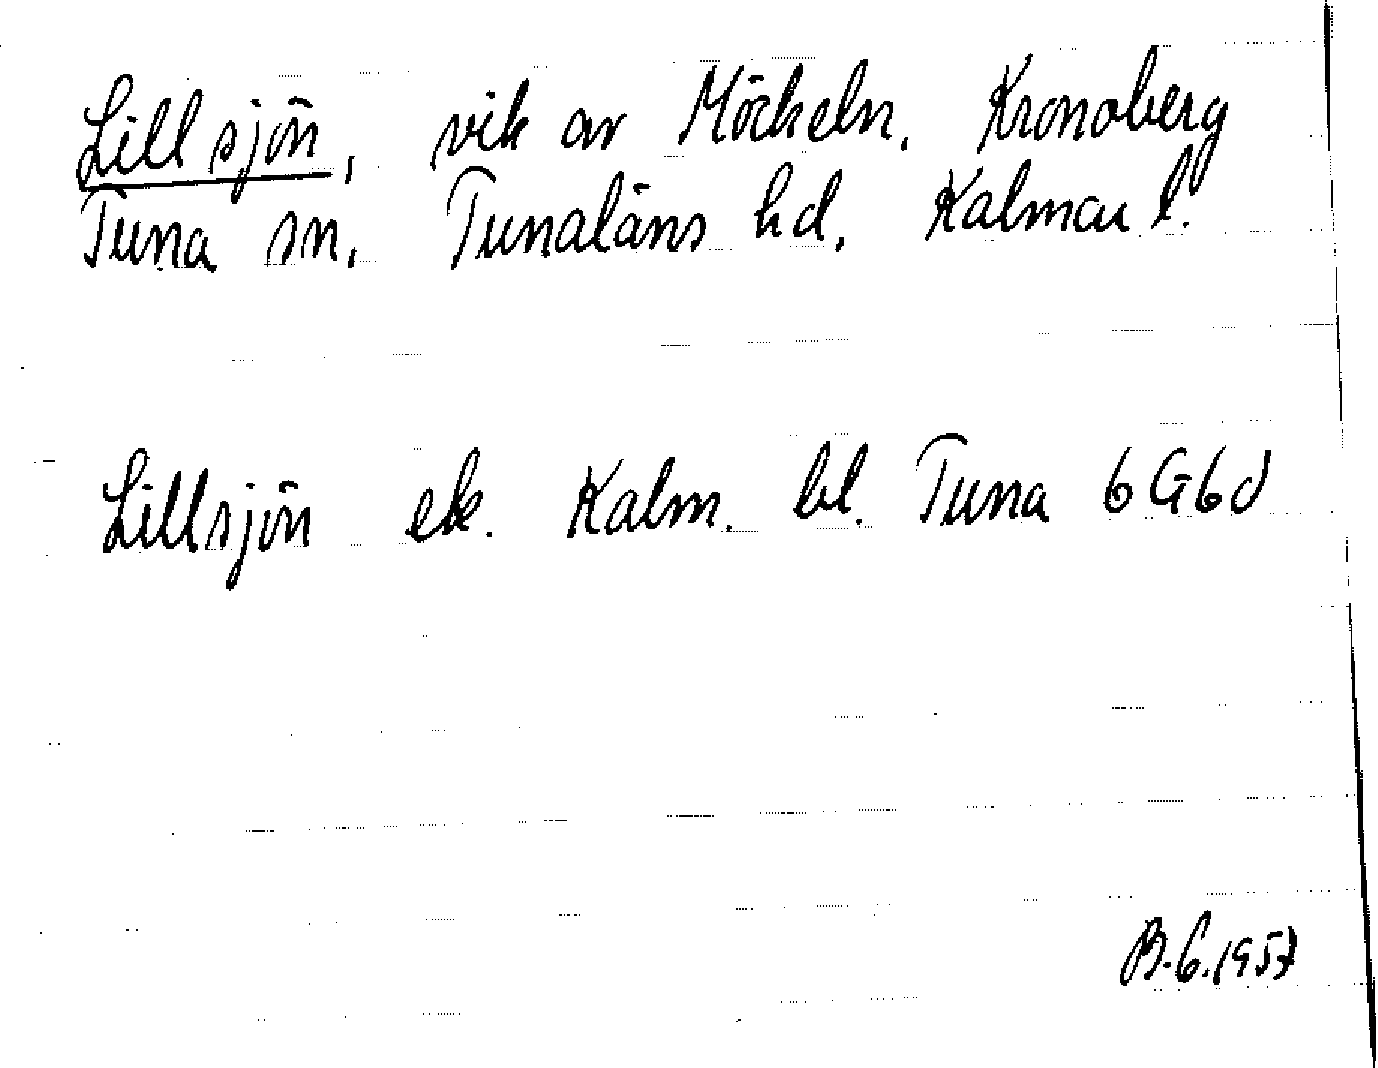 Lillsjön, vik av Möckeln, Kronoberg
Tuna sn, Tunaläns hd, Kalmar l.
Lillsjön ek. Kalm. bl. Tuna 6G6d
B.G.1957